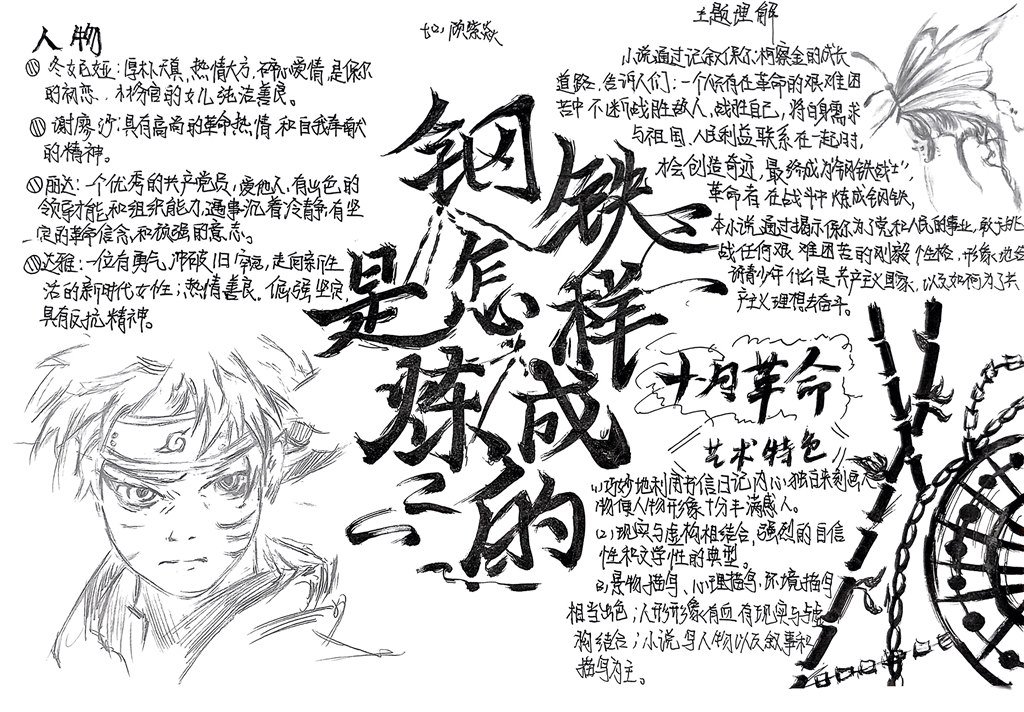 人物
冬妮娅:厚朴天真,热情大方,确心爱情,是保尔
的初恋.林务官的女儿纯洁善良。
谢廖沙:具有高尚的革命热情和自我奉献
的精神。
丽达:一个优秀的共产党员,爱他人,有出色的
领导才能和组织能力.遇事沉着冷静.有坚
定的革命信念和顽强的意志。
达雅:一位有勇气,冲破旧牢笼,走向新生
活的新时代女性;热情善良.倔强坚定,
具有反抗精神。
钢铁
是怎样
炼成
的
主题理解
小说通过记叙保尔·柯察金的成长
道路,告诉人们:一个人只有在革命的艰难困
苦中不断战胜敌人,战胜自己,将自身需求
与祖国、人民利益联系在一起时,
才会创造奇迹,最终成为"钢铁战士",
革命者在战斗中炼成钢铁,
本小说通过揭示保尔为了党和人民的事业,敢于挑
战任何艰难困苦的刚毅个性格,形象地告
诉青少年什么是共产主义国家,以及如何为了共
产主义理想去奋斗。
十月革命
艺术特色
(1)巧妙地利用书信日记内心独白来刻画人
物使人物形象十分丰满感人。
(2)现实与虚构相结合,强烈的自信
性和文学性的典型。
(3)景物描写、心理描写.环境描写
相当出色;人形形象有血有现实与虚
构结合;小说写人物以及叙事和
描写为主。